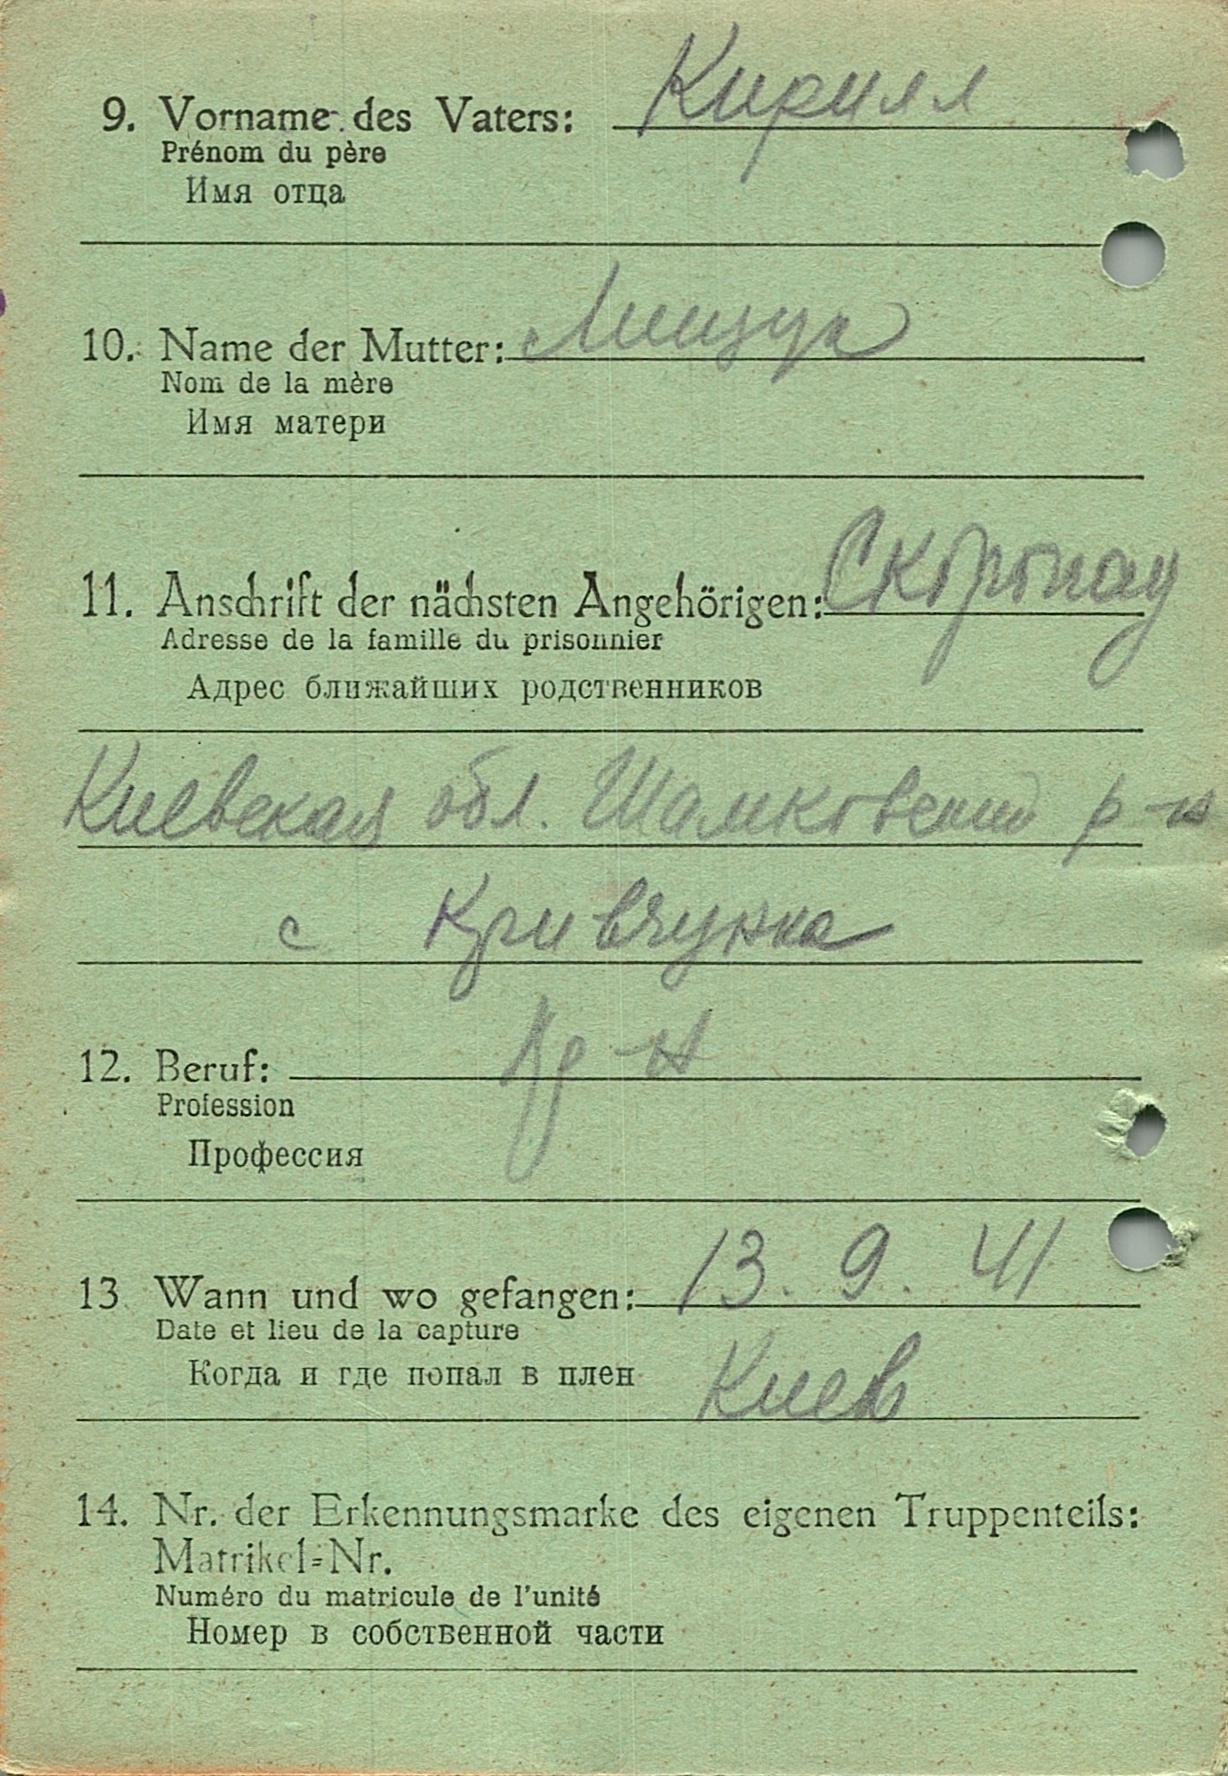 9. Vorname des Vaters: Кирилл
Prénom du père
Имя отца
10. Name der Mutter: Мищук
Nom de la mère
Имя матери
11. Anschrift der nächsten Angehörigen:
Adresse de la famille du prisonnier
Адрес ближайших родственников
Киевская обл. р-н
с Кривчунка
12. Beruf:
Profession
Профессия
13 Wann und wo gefangen: 13. 9. 41
Date et lieu de la capture
Когда и где попал в плен Киев
14. Nr. der Erkennungsmarke des eigenen Truppenteils:
Matrikel-Nr.
Numéro du matricule de l'unité
Номер в собственной части